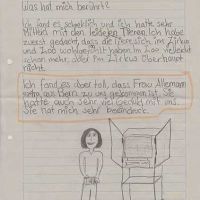 Was hat mich berührt?
Ich fand es schrecklich und ich hatte sehr
Mitleid mit den leidenen Tieren. Ich habe
zuerst gedacht, dass die Tiere sich im Zirkus
und Zoo wohlgefühlt haben. Im Zoo vieleicht
schon mehr, aber im Zirkus überhaupt
nicht.
Ich fand es aber toll, dass Frau Allemann
extra aus Bern zu uns gekommen ist. Sie
hatte auch sehr viel Geduld mit uns.
Sie hat mich sehr beeindruck